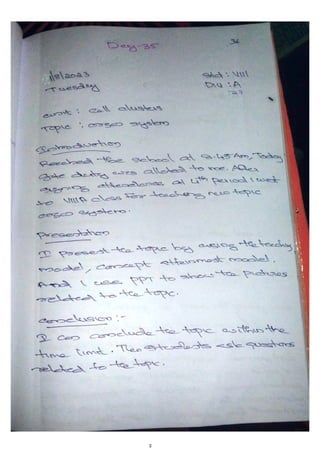 Day-35
36
1/8/2023
Std : VIII
Tuesday
Div : A
unit : Cell clusters
Topic : organ system
Introduction
Reached the school at 8.45 Am, Today
gate duty was alloted to me. After
signing attendance at 4th period i went
to VIII A class for teaching new topic
organ system.
Presentation
I Present the topic by using the teaching
model, concept attainment model.
And I use PPT to show the Pictures
related to the topic.
conclusion :-
I can conclude the topic within the
time limit. Then students ask questions
related to the topic.